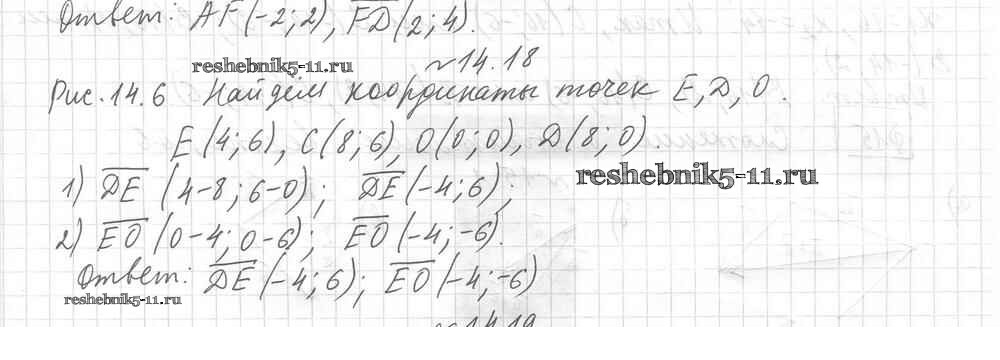 Ответ: AF(-2; 2), FD(2; 4).
reshebnik5-11.ru
№14.18
Рис. 14.6 Найдем координаты точек E, D, O.
E(4; 6), C(8; 6), O(0; 0), D(8; 0)
reshebnik5-11.ru
1) DE (4-8; 6-0); DE(-4; 6);
2) EO (0-4; 0-6); EO(-4; -6).
Ответ: DE(-4; 6); EO(-4; -6)
reshebnik5-11.ru
№14.19